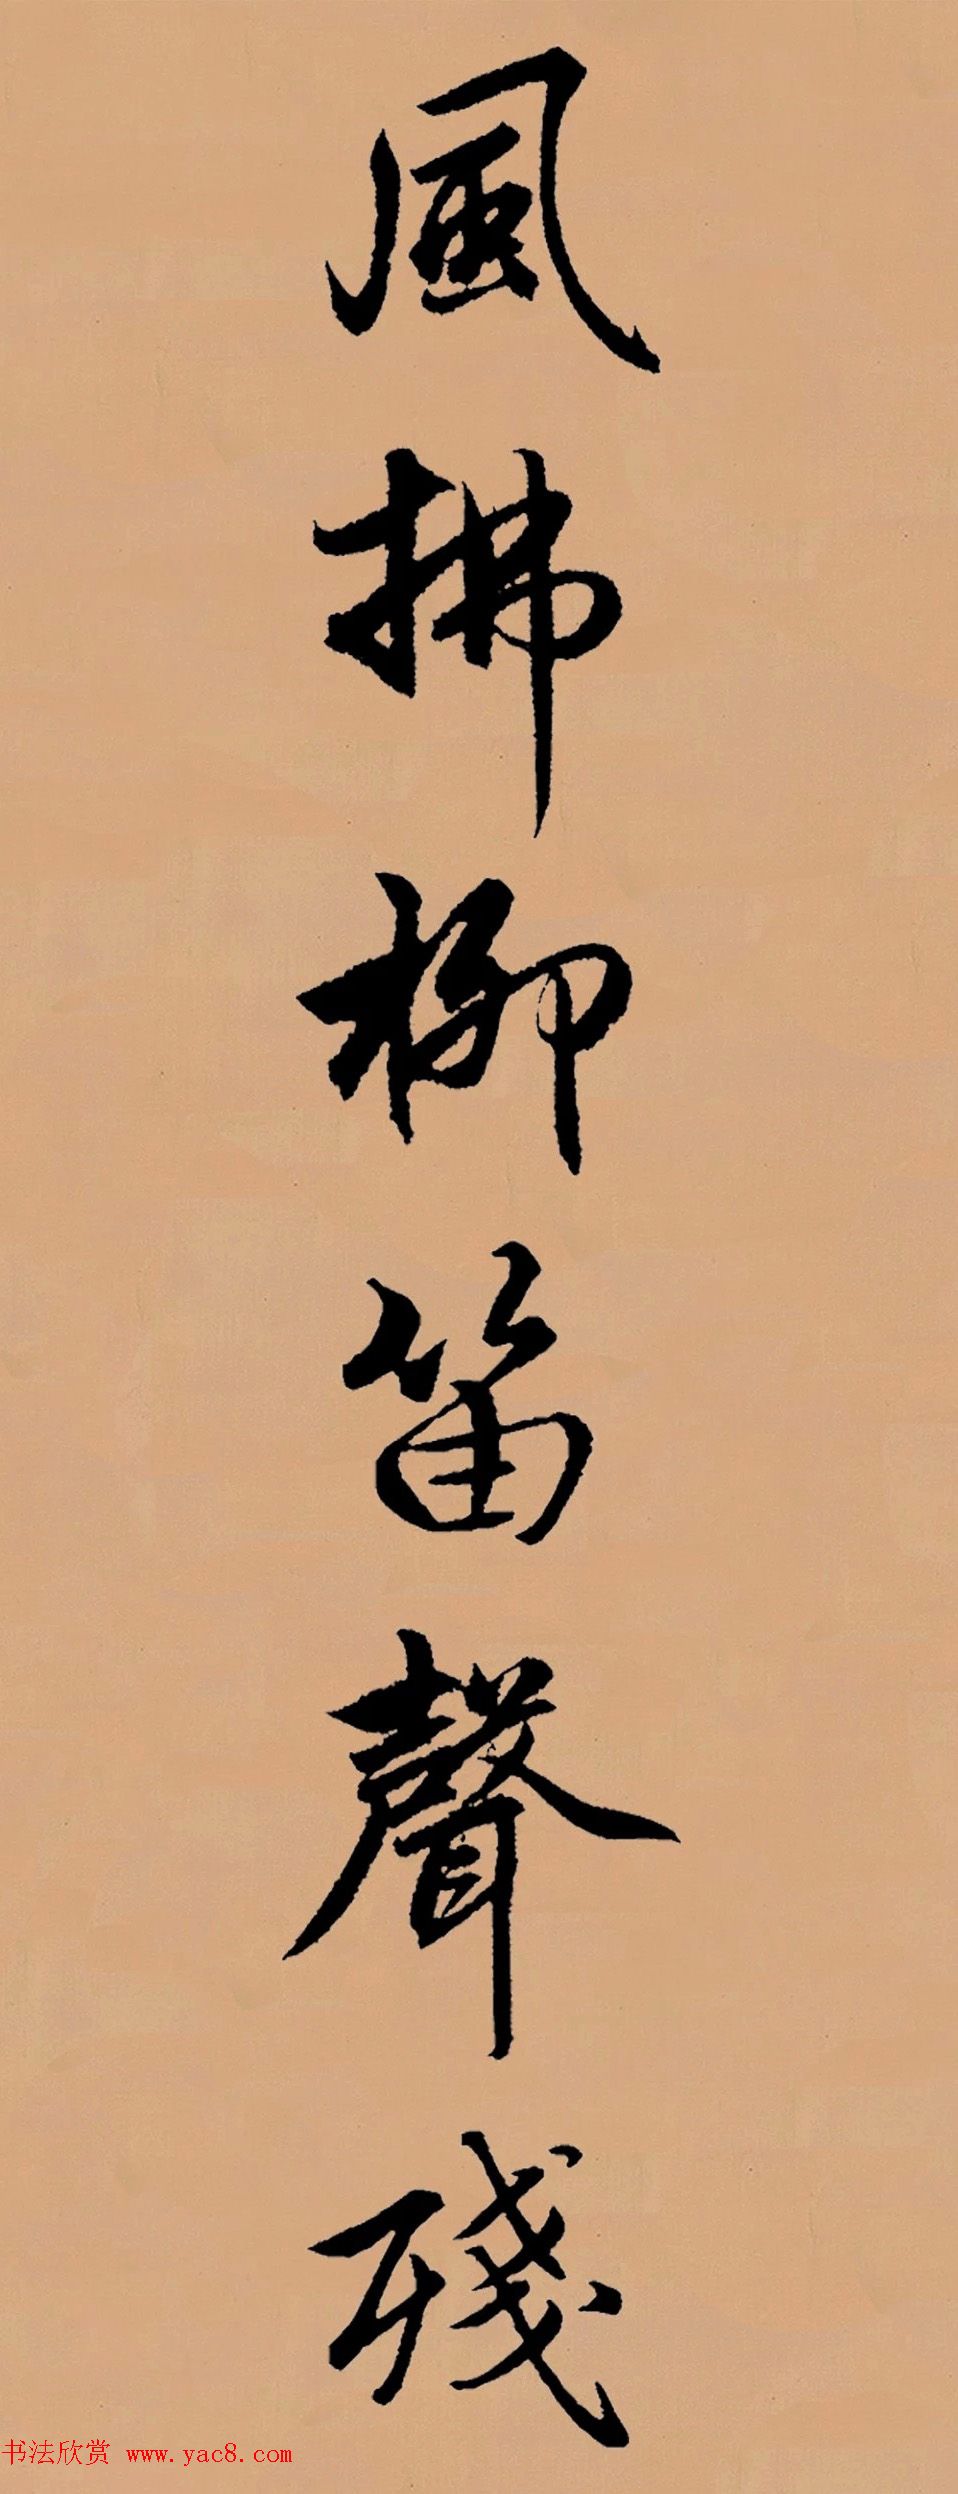 風拂柳笛聲殘
书法欣赏 www.yac8.com